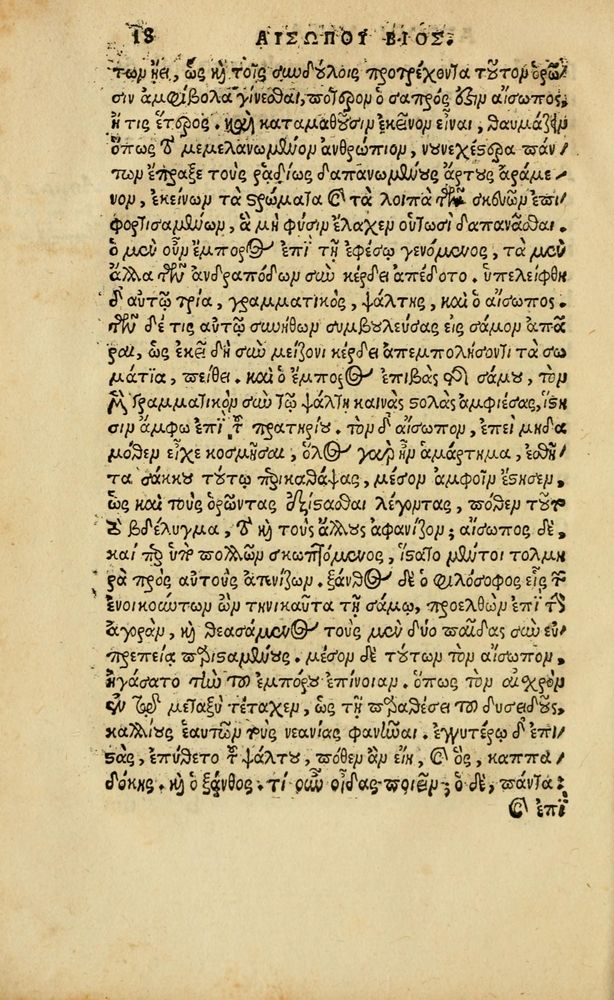 18 ΑΙΣΩΠΟΥ ΒΙΟΣ.
των ᾔει, ὡς καὶ τοῖς συνδούλοις προτρέχοντα τοῦτον ὁρῶ
σιν ἀμφίβολα γίνεσθαι, πότερον ὁ σαπρός ἐστιν αἴσωπος,
ἤ τις ἕτερος. καὶ καταμαθοῦσιν ἐκεῖνον εἶναι, θαυμάζειν
ὅπως τὸ μεμελανωμένον ἀνθρώπιον, νουνεχέστερα πάν
των ἔπραξε τοὺς ῥᾳδίως δαπανωμένους ἄρτους ἀράμε
νον, ἐκείνων τὰ στρώματα καὶ τὰ λοιπὰ τῶν σκευῶν ἐπι
φορτισαμένων, ἃ μὴ φύσιν ἔλαχεν οὑτωσὶ δαπανᾶσθαι.
ὁ μὲν οὖν ἔμπορος ἐπὶ τῇ ἐφέσῳ γενόμενος, τὰ μὲν
ἄλλα τῶν ἀνδραπόδων σὺν κέρδει ἀπέδοτο. ὑπελείφθη
δ' αὐτῷ τρία, γραμματικός, ψάλτης, καὶ ὁ αἴσωπος.
τῶν δέ τις αὐτῷ συνήθων συμβουλεύσας εἰς σάμον ἀπᾶ
ραι, ὡς ἐκεῖ δὴ σὺν μείζονι κέρδει ἀπεμπολήσοντι τὰ σω
μάτια, πείθει. καὶ ὁ ἔμπορος ἐπιβὰς τῆς σάμου, τὸν
μὲν γραμματικὸν σὺν τῷ ψάλτῃ καινὰς στολὰς ἀμφιέσας, ἵστη
σιν ἄμφω ἐπὶ τοῦ πρατηρίου. τὸν δ' αἴσωπον, ἐπεὶ μηδα
μόθεν εἶχε κοσμῆσαι, ὅλος γὰρ ἦν ἁμάρτημα, ἐσθῆ
τα σάκκου τούτῳ περικαθάψας, μέσον ἀμφοῖν ἔστησεν,
ὡς καὶ τοὺς ὁρῶντας ἐξίστασθαι λέγοντας, πόθεν τοῦτ
ὸ βδέλυγμα, τὸ καὶ τοὺς ἄλλους ἀφανίζον; αἴσωπος δέ,
καίπερ ὑπὸ πολλῶν σκωπτόμενος, ἵστατο μέντοι τολμη
ρὰ πρὸς αὐτοὺς ἀτενίζων. ξάνθος δὲ ὁ φιλόσοφος εἷς τῶν
ἐνοικούντων ὢν τηνικαῦτα τῇ σάμῳ, προελθὼν ἐπὶ τὴν
ἀγοράν, καὶ θεασάμενος τοὺς μὲν δύο παῖδας σὺν εὐ
πρεπείᾳ παρισταμένους. μέσον δὲ τούτων τὸν αἴσωπον,
ἠγάσατο τὴν τοῦ ἐμπόρου ἐπίνοιαν. ὅπως τὸν αἰσχρὸν
ἐν τῷ μεταξὺ τέταχεν, ὡς τῇ παραθέσει τοῦ δυσειδοῦς,
καλλίους ἑαυτῶν τοὺς νεανίας φανῆναι. ἐγγυτέρω δ' ἐπι
στάς, ἐπύθετο τοῦ ψάλτου, πόθεν ἂν εἴη, καὶ ὅς, καππα
δόκης. καὶ ὁ ξάνθος. τί οὖν οἶδας ποιεῖν; ὁ δέ, πάντα.
καὶ ἐπὶ